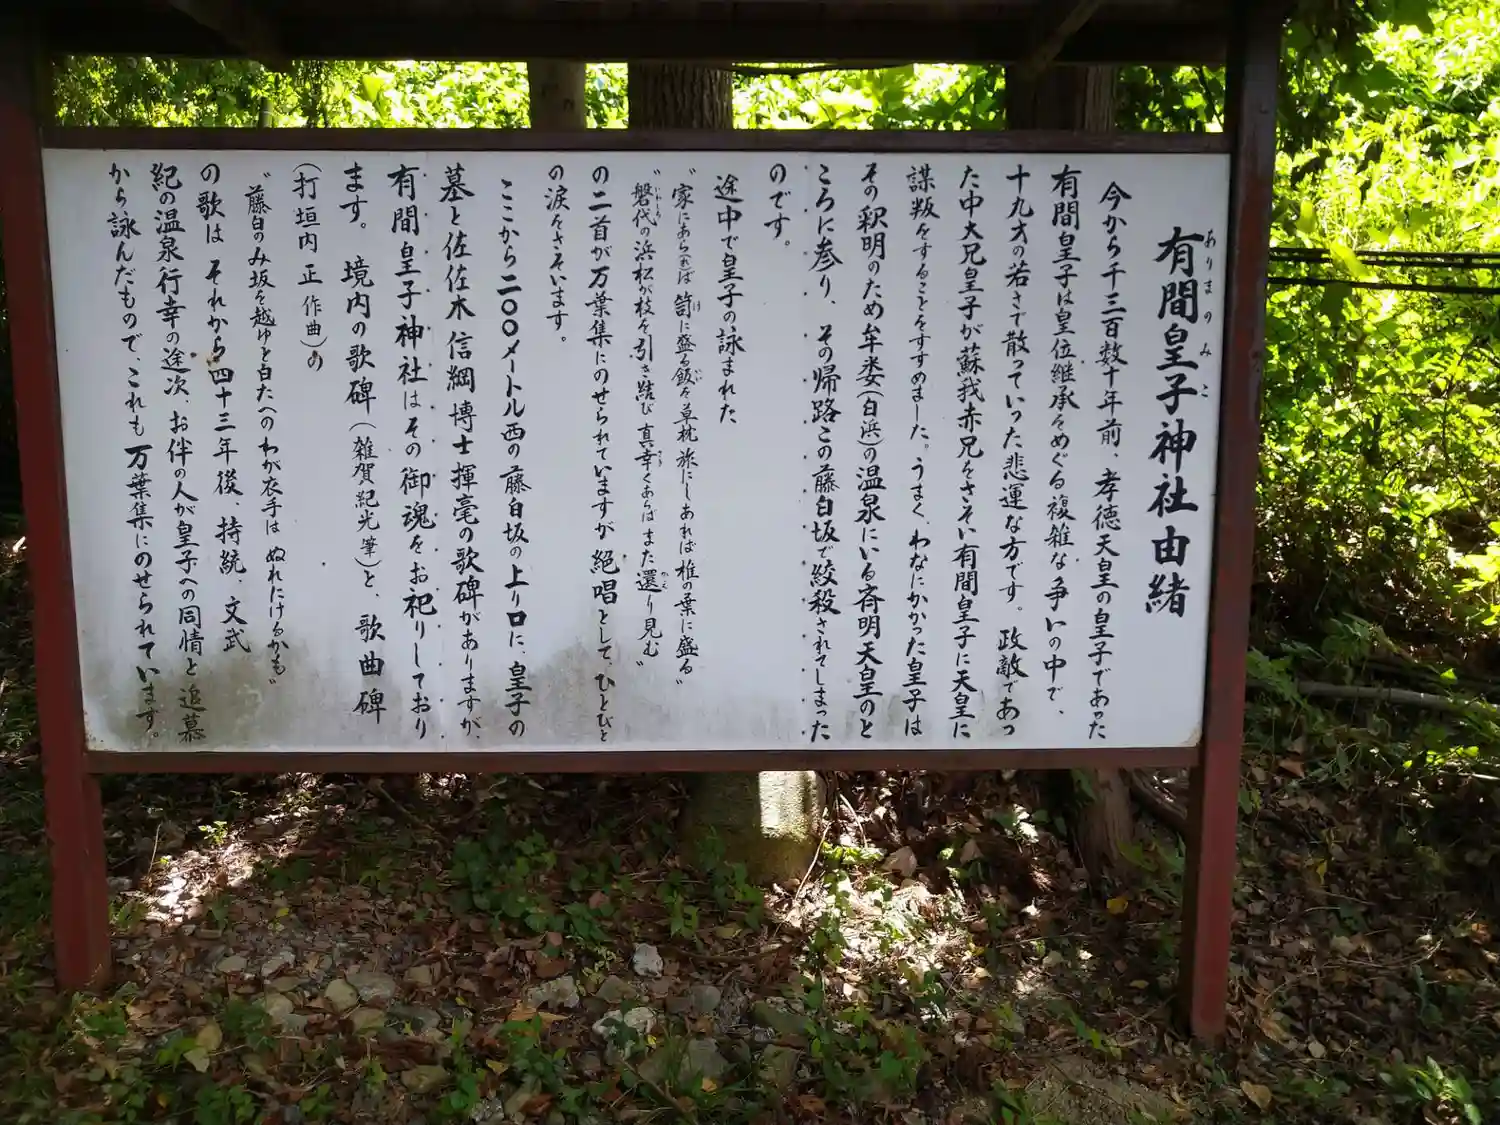 有間皇子神社由緒
ありまのみこ
今から千三百数十年前、孝徳天皇の皇子であった
有間皇子は皇位継承をめぐる複雑な争いの中で、
十九才の若さで散っていった悲運な方です。政敵であっ
た中大兄皇子が蘇我赤兄をさそい有間皇子に天皇に
謀叛をすることをすすめました。うまく、わなにかかった皇子は
その釈明のため牟婁(白浜)の温泉にいる斉明天皇のと
ころに参り、その帰路この藤白坂で絞殺されてしまった
のです。
途中で皇子の詠まれた
"家にあ(れ)ば笥に盛る飯を草枕旅にしあれば椎の葉に盛る"
"磐代の浜松が枝を引き結び真幸くあらばまた還り見む"
の二首が万葉集にのせられていますが絶唱として、ひとびと
の涙をさそいます。
ここから二〇〇メートル西の藤白坂の上り口に、皇子の
墓と佐佐木信綱博士揮毫の歌碑がありますが、
有間皇子神社はその御魂をお祀りしており
ます。境内の歌碑(雑賀紀光筆)と、歌曲碑
(打垣内正作曲)の
"藤白のみ坂を越ゆと白たへのわが衣手はぬれにけるかも"
の歌はそれから四十三年後、持統、文武
紀の温泉行幸の途次、お伴の人が皇子への同情と追慕
から詠んだもので、これも万葉集にのせられています。